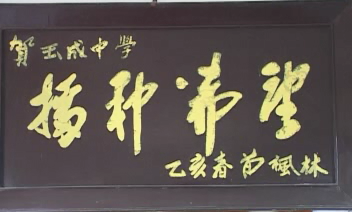 賀玉成中學
播种希望
乙亥春节楓林